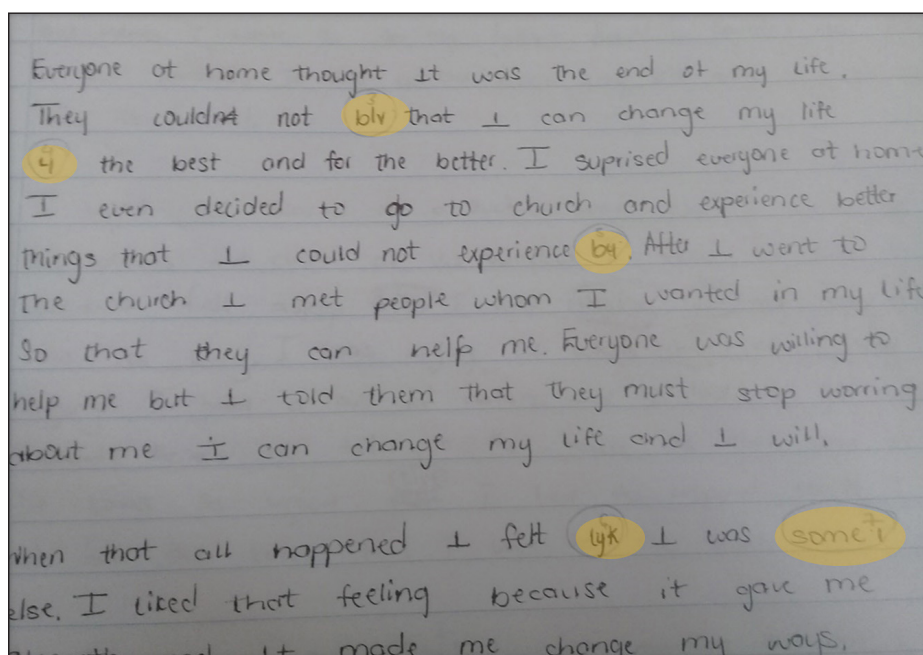 Everyone at home thought it was the end of my life.
They couldnt not blv that I can change my life
4 the best and for the better. I suprised everyone at home
I even decided to go to church and experience better
things that I could not experience b4. After I went to
the church I met people whom I wanted in my life
So that they can help me. Everyone was willing to
help me but I told them that they must stop worring
about me I can change my life and I will.
When that all happened I felt lyk I was some1
else. I liked that feeling because it gave me
it made me change my ways.